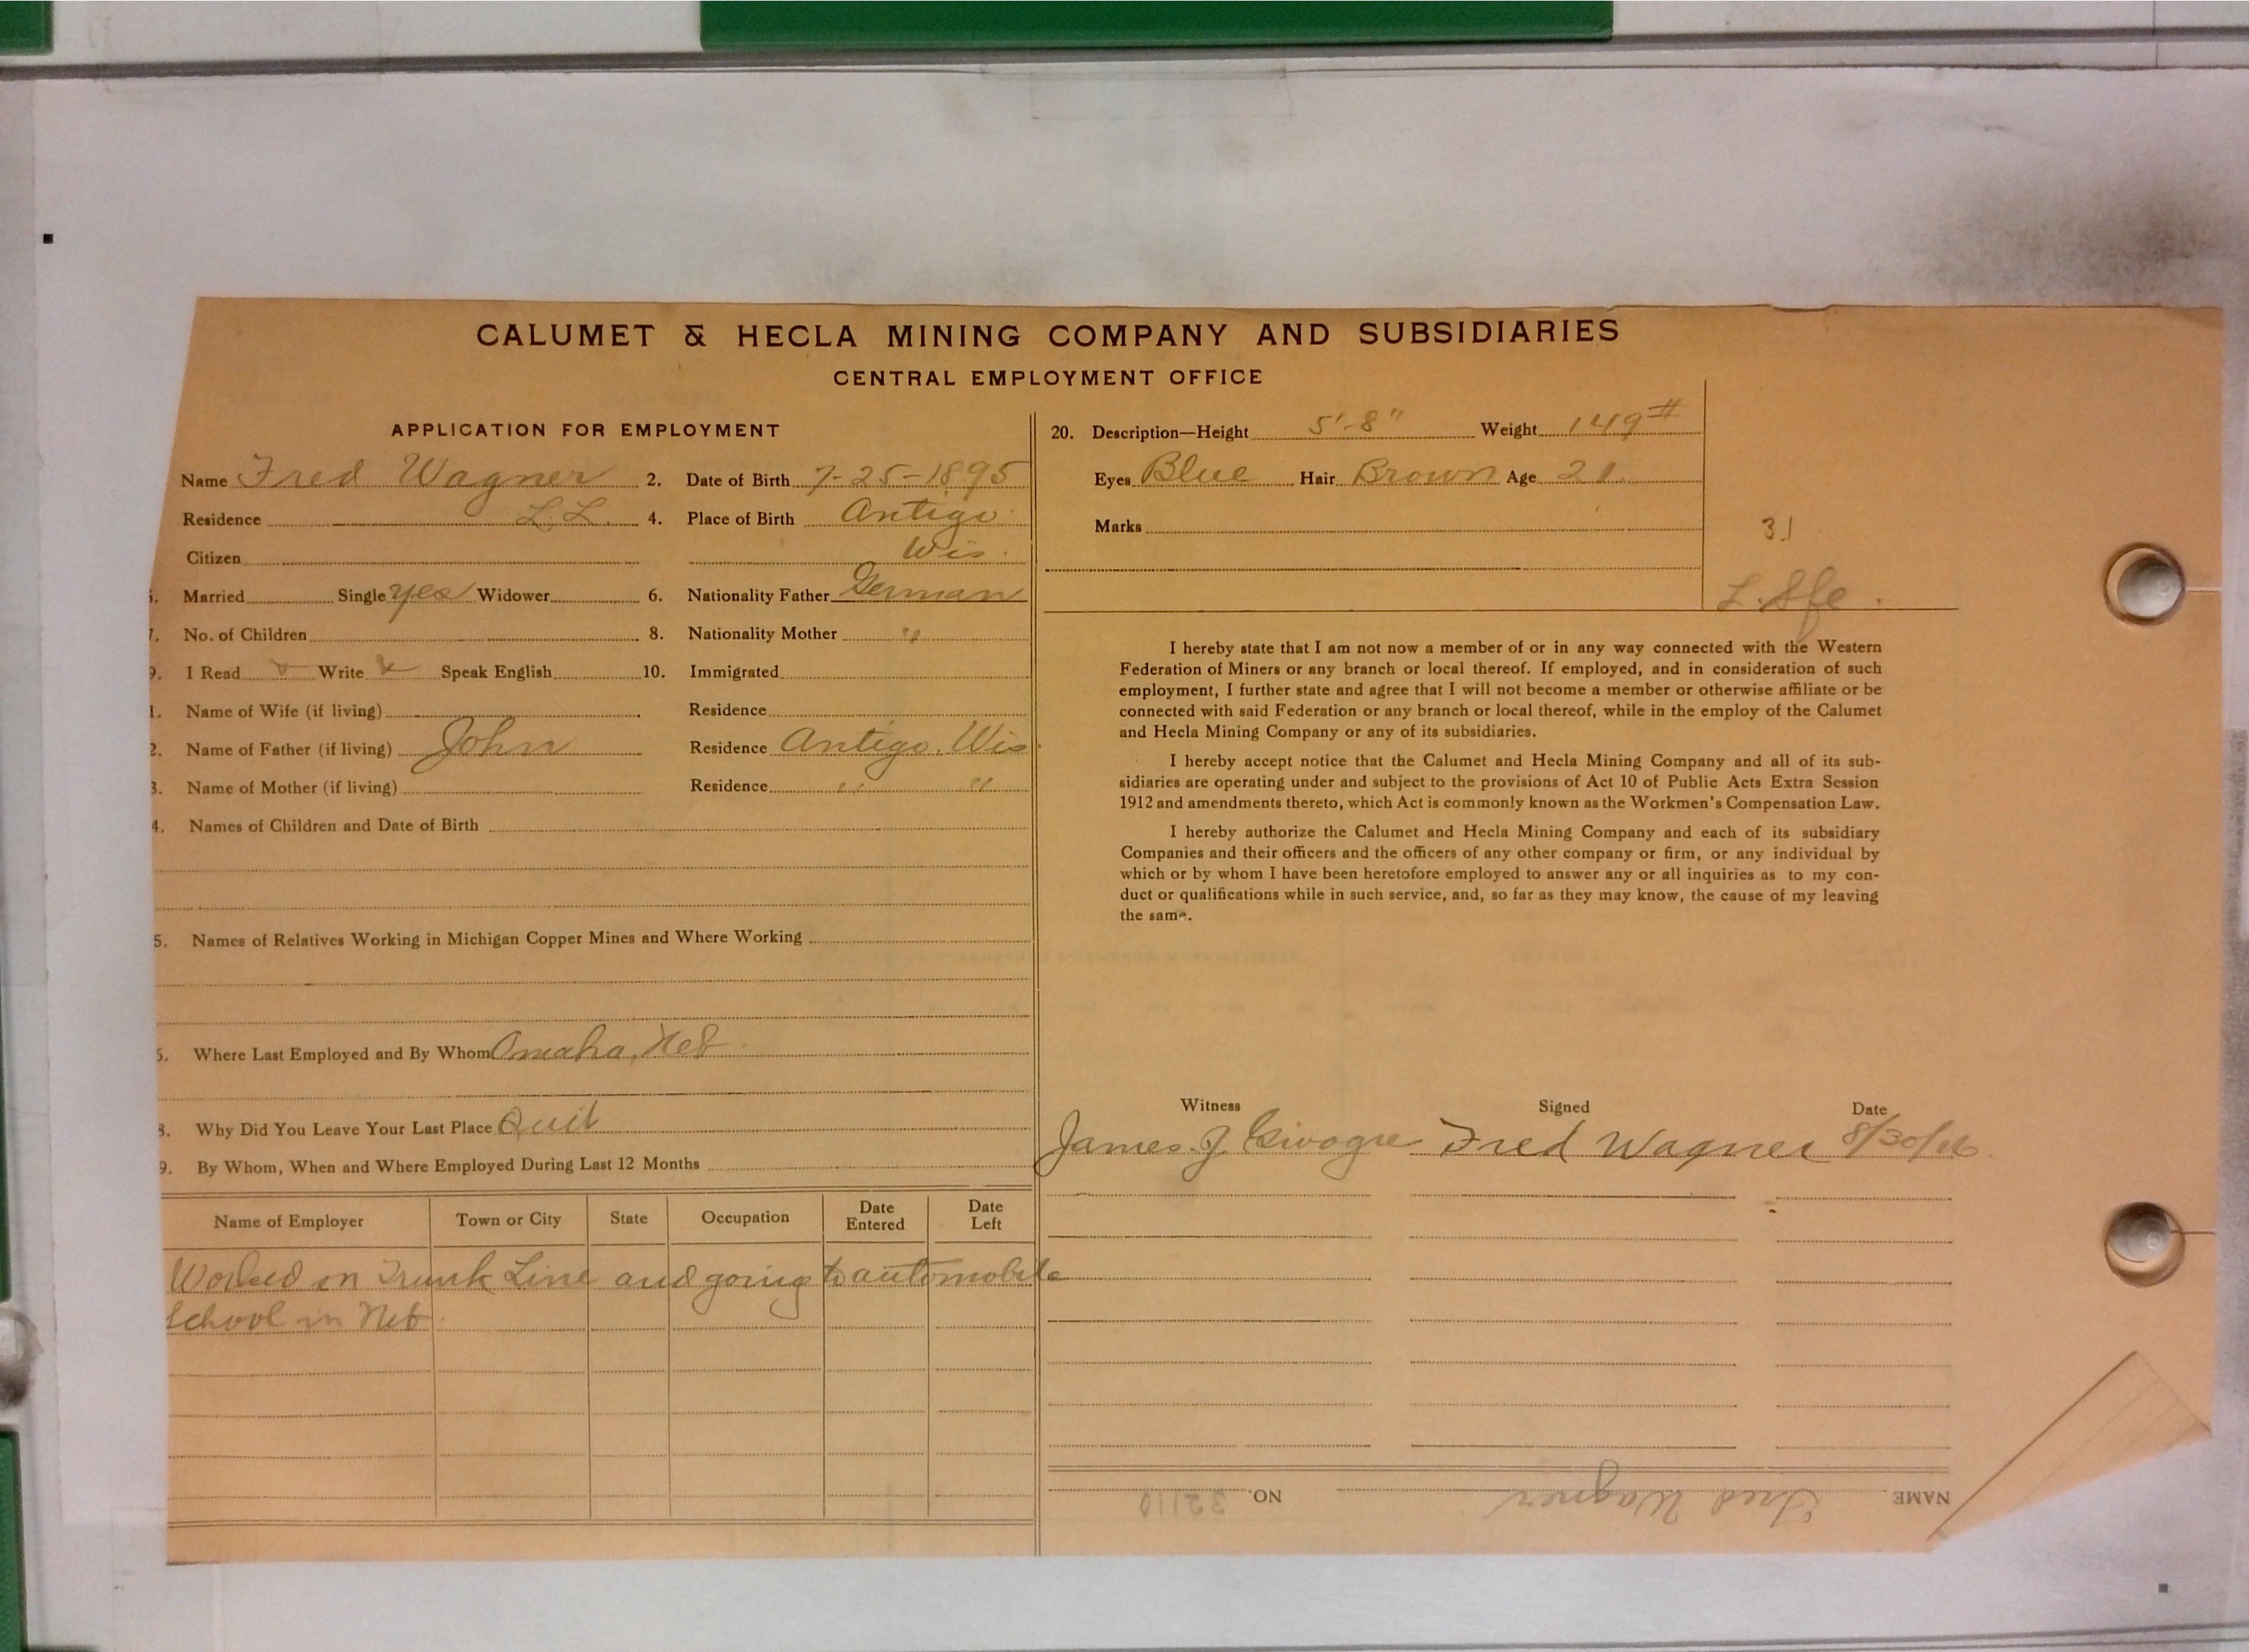 CALUMET & HECLA MINING COMPANY AND SUBSIDIARIES
CENTRAL EMPLOYMENT OFFICE
APPLICATION FOR EMPLOYMENT
Name Fred Wagner 2. Date of Birth 7-25-1895
Residence L.L. 4. Place of Birth Antigo
Citizen Wis.
5. Married Single yes Widower 6. Nationality Father German
7. No. of Children 8. Nationality Mother "
9. I Read Write Speak English 10. Immigrated
1. Name of Wife (if living) Residence
2. Name of Father (if living) John Residence Antigo, Wis
3. Name of Mother (if living) Residence " "
4. Names of Children and Date of Birth
5. Names of Relatives Working in Michigan Copper Mines and Where Working
6. Where Last Employed and By Whom Omaha, Neb.
8. Why Did You Leave Your Last Place Quit
9. By Whom, When and Where Employed During Last 12 Months
Name of Employer Town or City State Occupation Date Entered Date Left
Worked on Trunk Line and going to automobile
School in Neb.
20. Description—Height 5'-8" Weight 149#
Eyes Blue Hair Brown Age 21.
Marks
31
I hereby state that I am not now a member of or in any way connected with the Western
Federation of Miners or any branch or local thereof. If employed, and in consideration of such
employment, I further state and agree that I will not become a member or otherwise affiliate or be
connected with said Federation or any branch or local thereof, while in the employ of the Calumet
and Hecla Mining Company or any of its subsidiaries.
I hereby accept notice that the Calumet and Hecla Mining Company and all of its sub-
sidiaries are operating under and subject to the provisions of Act 10 of Public Acts Extra Session
1912 and amendments thereto, which Act is commonly known as the Workmen's Compensation Law.
I hereby authorize the Calumet and Hecla Mining Company and each of its subsidiary
Companies and their officers and the officers of any other company or firm, or any individual by
which or by whom I have been heretofore employed to answer any or all inquiries as to my con-
duct or qualifications while in such service, and, so far as they may know, the cause of my leaving
the same.
Witness Signed Date
James J. Fred Wagner 8/30/16
NAME Fred Wagner NO. 32110